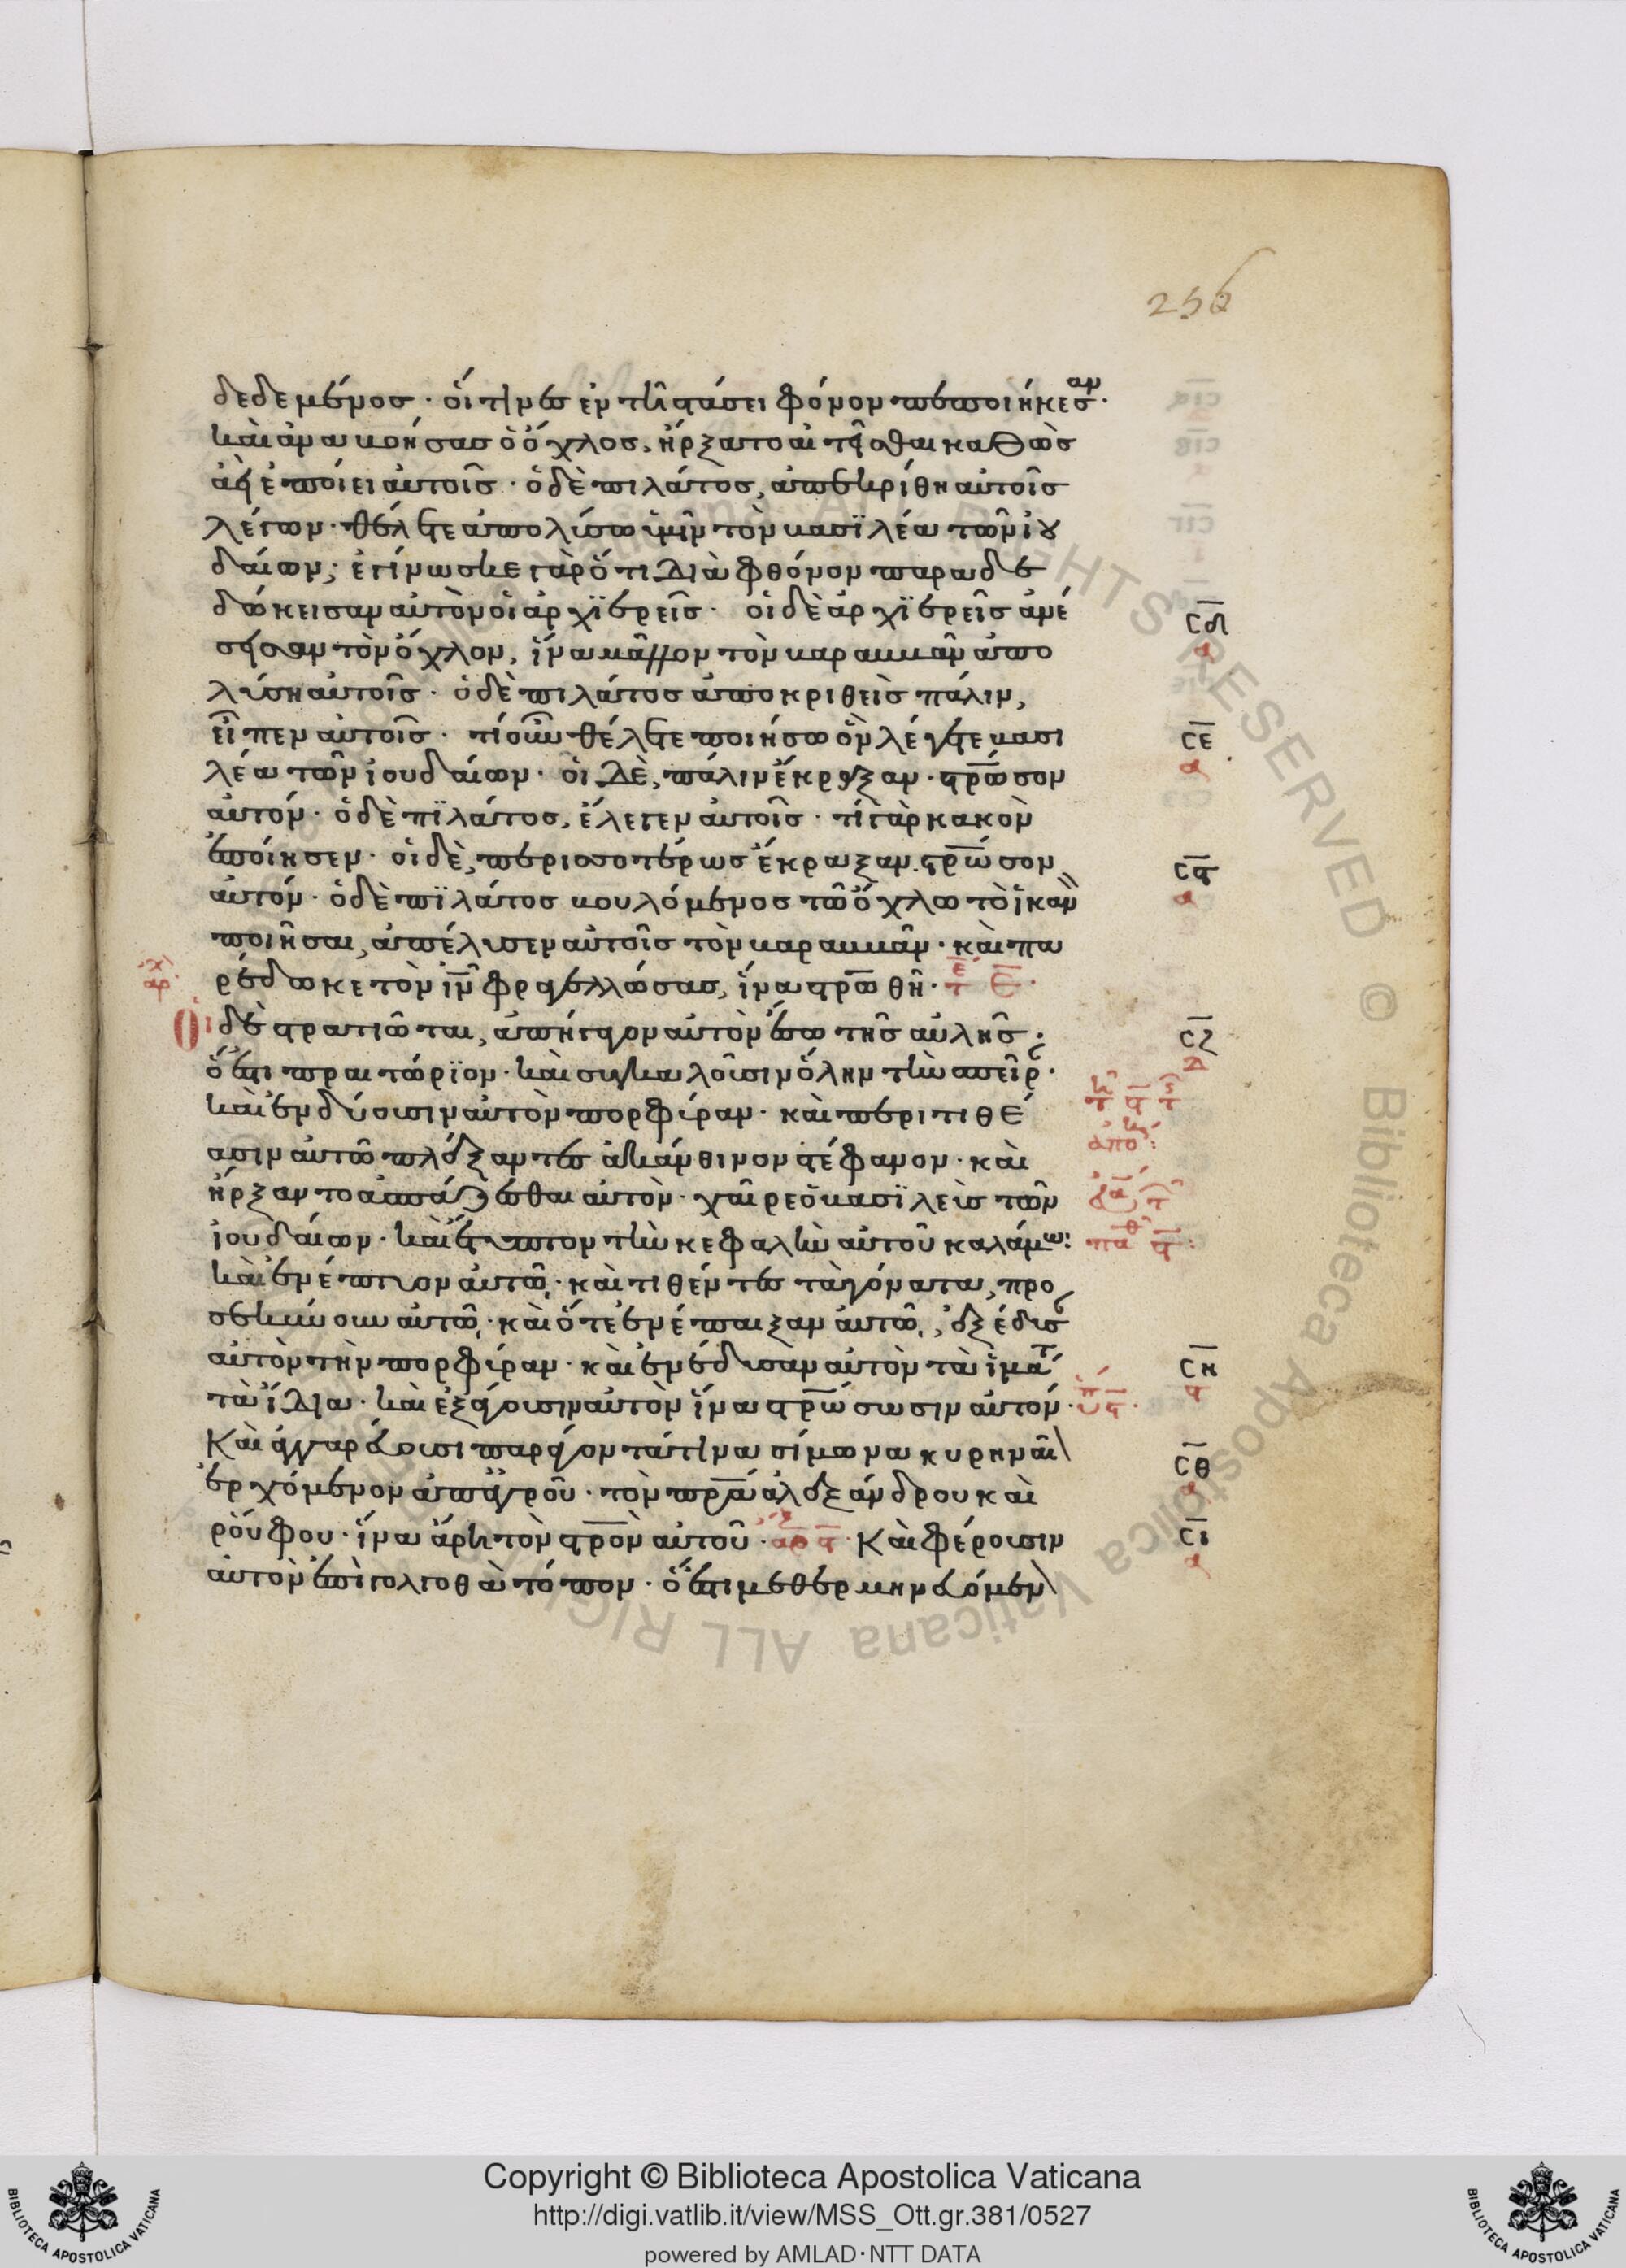 256
δεδεμένος · οἵτινες ἐν τῆ στάσει φόνον πεποιήκεσαν ·
καὶ ἀναβοήσας ὁ ὄχλος, ἤρξατο αἰτεῖσθαι καθὼς
ἀεὶ ἐποίει αὐτοῖς · ὁ δὲ πιλάτος, ἀπεκρίθη αὐτοῖς
λέγων · θέλετε ἀπολύσω ὑμῖν τὸν βασϊλέα τῶν ἰου
δαίων; ἐγίνωσκε γὰρ ὅτι διὰ φθόνον παραδε
δώκεισαν αὐτὸν οἱ ἀρχϊερεῖς · οἱ δὲ ἀρχϊερεῖς ἀνέ
σεισαν τὸν ὄχλον, ἵνα μᾶλλον τὸν βαραββᾶν ἀπο
λύση αὐτοῖς · ὁ δὲ πιλάτος ἀποκριθεὶς πάλιν,
εἶπεν αὐτοῖς · τί οὖν θέλετε ποιήσω ὃν λέγετε βασι
λέα τῶν ἰουδαίων · οἱ δὲ, πάλιν ἔκραξαν · στρωσον
αὐτόν · ὁ δὲ πϊλάτος, ἔλεγεν αὐτοῖς · τί γὰρ κακὸν
ἐποίησεν · οἱ δὲ, περισσοτέρως ἔκραξαν · στρωσον
αὐτόν · ὁ δὲ πϊλάτος βουλόμενος τῶ ὄχλω τὸ ἱκανὸν
ποιῆσαι, ἀπέλυσεν αὐτοῖς τὸν βαραββᾶν · καὶ πα
ρέδωκε τὸν ιν φραγελλώσας, ἵνα στρωθῆ ·
Οἱ δὲ στρατιῶται, ἀπήγαγον αὐτὸν ἔσω τῆς αὐλῆς ·
ὅ ἐστι πραιτώρϊον · καὶ συγκαλοῦσιν ὅλην τὴν σπεῖρ ·
καὶ ἐνδύουσιν αὐτὸν πορφύραν · καὶ περιτιθέ
ασιν αὐτῶ πλέξαντες ἀκάνθινον στέφανον · καὶ
ἤρξαντο ἀσπάζεσθαι αὐτὸν · χαῖρε ὁ βασϊλεὺς τῶν
ἰουδαίων · καὶ ἔτυπτον τὴν κεφαλὴν αὐτοῦ καλάμω:
καὶ ἐνέπτυον αὐτῶ · καὶ τιθέντες τὰ γόνατα, προ
σεκύνουν αὐτῶ · καὶ ὅτε ἐνέπαιξαν αὐτῶ, ἐξέδυσ
αὐτὸν τὴν πορφύραν · καὶ ἐνέδυσαν αὐτὸν τὰ ἱμάτ
τὰ ἴδια · καὶ ἐξάγουσιν αὐτὸν ἵνα στρώσωσιν αὐτόν ·
Καὶ ἀγγαρεύουσι παράγοντά τινα σίμωνα κυρηναῖ
ἐρχόμενον ἀπ' ἀγροῦ · τὸν πρα ἀλεξάνδρου καὶ
ῥούφου · ἵνα ἄρη τὸν στρον αὐτοῦ · Καὶ φέρουσιν
αὐτὸν ἐπὶ γολγοθὰ τόπον · ὅ ἐστι μεθερμηνευόμεν
σδ
α
σε
α
σς
α
σζ
δ
ση
σθ
σι
α
Copyright © Biblioteca Apostolica Vaticana
http://digi.vatlib.it/view/MSS_Ott.gr.381/0527
powered by AMLAD·NTT DATA
BIBLIOTECA APOSTOLICA VATICANA
BIBLIOTECA APOSTOLICA VATICANA